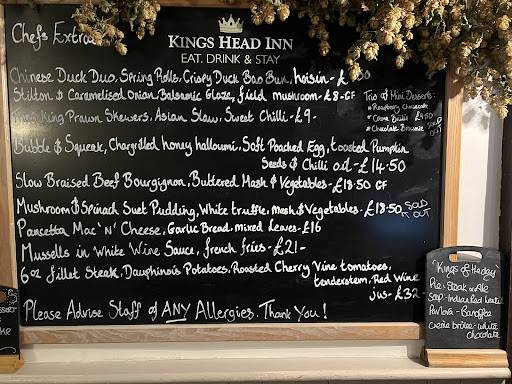 Chefs Extras
KINGS HEAD INN
EAT, DRINK & STAY
Chinese Duck Duo, Spring Rolls, Crispy Duck Bao Bun, hoisin - £
Stilton & Caramelised Onion Balsamic Glaze, field mushroom - £8 - GF
King Prawn Skewers, Asian Slaw, Sweet Chilli - £9 -
Bubble & Squeak, Chargrilled honey halloumi, Soft Poached Egg, toasted Pumpkin
Seeds & Chilli oil - £14.50
Slow Braised Beef Bourgignon, Buttered Mash & Vegetables - £18.50 GF
Mushroom & Spinach Suet Pudding, White truffle, mash & Vegetables - £18.50 SOLD OUT
Pancetta Mac 'N' Cheese, Garlic Bread, mixed leaves - £16
Mussells in White Wine Sauce, french fries - £21 -
6oz fillet Steak, Dauphinois Potatoes, Roasted Cherry Vine tomatoes,
tenderstem, Red Wine
jus - £32
Please Advise Staff of ANY Allergies. Thank You!
Trio of Mini Desserts:
* Raspberry Cheesecake
* Creme Brulee £9.50
* Chocolate Brownie SOLD OUT
"Kings of the day"
Pie: Steak n Ale
Soup - Indian Red Lentil
Pavlova - Banoffee
Creme brulee - white
chocolate